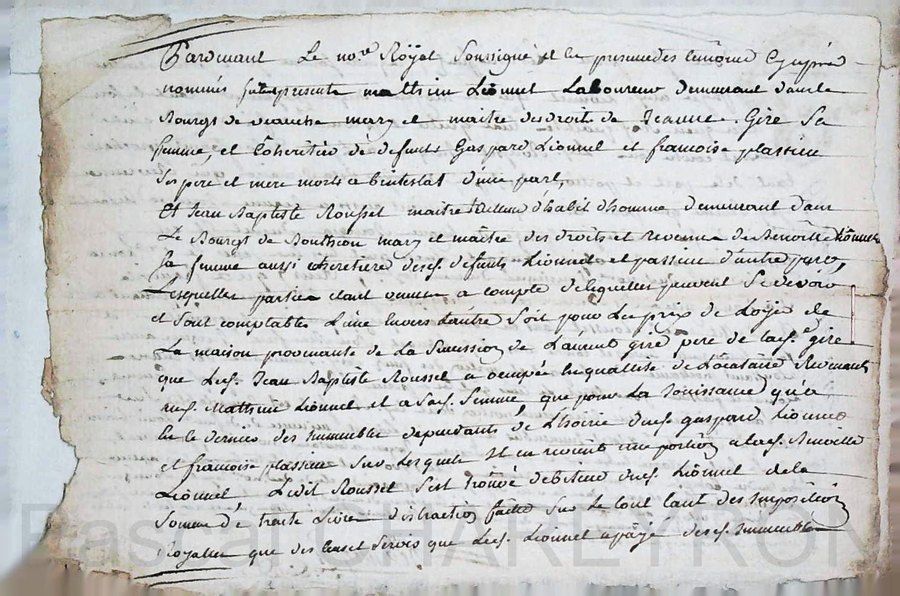 Pardevant Le no.re Royal Soussigné et en presence des temoins Cyaprés
nommés fut present mathieu Lionnet Laboureur demeurant dans le
Bourg de marcy et maitre des droits de Jeanne Gire Sa
femme, et Coheritier de defunts Gaspard Lionnel et francoise plassieu
Ses pere et mere morts abintestat d'une part,
Et Jean Baptiste Rousset maitre tailleur d'habit d'homme demeurant dans
Le Bourg de mary et maitre des droits et Revenus de Benoitte Lionnel
sa femme aussi coheretiere desd. defunts Lionnel et plassieu d'autre part,
Lesquelles parties etant venues a compte de ce qu'elles peuvent Se devoir,
et sont comptables L'une envers L'autre Soit pour Le prix de Loyer de
La maison provenante de La Succession de Laurent gire pere de lad. gire
que Led. Jean Baptiste Rousset a occupée en qualité de Locataire
aud. Mathieu Lionnel et a Sad. femme, que pour La Jouissance qu'a
eu le dernier des immeubles dependants de L'hoirie dud. gaspard Lionnel
et francoise plassieu Sur Lesquels Il en revient une portion a lad. Benoitte
Lionnel Ledit Rousset S'est trouvé debiteur dud. Lionnel de la
Somme de trante Livres distraction faitte Sur Le tout tant des Impositions
Royalles que des Cens et Servis que Led. Lionnel a payé desd. Immeubles
Pascal CHAREYRON